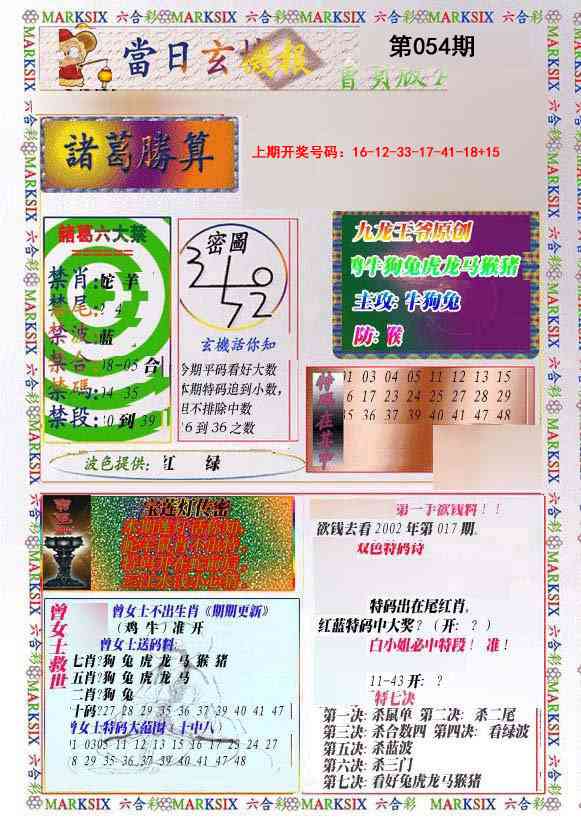 六合彩 MARKSIX 六合彩 MARKSIX 六合彩 MARKSIX 六合彩 MARKSIX
當日玄機报
第054期
諸葛勝算
上期开奖号码：16-12-33-17-41-18+15
諸葛六大禁
禁肖:蛇 羊
禁尾: 4
禁波:蓝
禁合:08-05 合
禁碼:14 35
禁段: 到 39
密圖
玄機話你知
今期平码看好大数
本期特码追到小数,
但不排除中数
6 到 3 6 之数
九龙王爷原创
牛狗兔虎龙马猴猪
主攻: 牛狗兔
防: 猴
1 03 04 05 11 12 13 15
6 17 23 24 25 27 28 29
35 36 37 39 40 41 47 48
波色提供: 红 绿
宝莲灯传密
第一手欲钱料！！
欲钱去看 2002 年第 017 期.
双色特码诗
特码出在尾红肖.
红蓝特码中大奖？（开:？）
白小姐必中特段！ 准！
11-43 开: ？
特七决
第一决: 杀鼠单 第二决: 杀二尾
第三决: 杀合数四 第四决: 看绿波
第五决: 杀蓝波
第六决: 杀三门
第七决: 看好兔虎龙马猴猪
曾女士救世
曾女士不出生肖《期期更新》
（鸡 牛）准 开
曾女士送码料:
七肖?狗 兔 虎 龙 马 猴 猪
五肖?狗 兔 虎 龙 马
二肖?狗 兔
十码?27 28 29 35 36 37 39 40 41 47
曾女士特码大范围（十中八）
1 0305 11 12 13 15 16 17 23 24 27
8 29 35 36 37 39 40 41 47 48
六合彩 MARKSIX 六合彩 MARKSIX 六合彩 MARKSIX 六合彩 MARKSIX